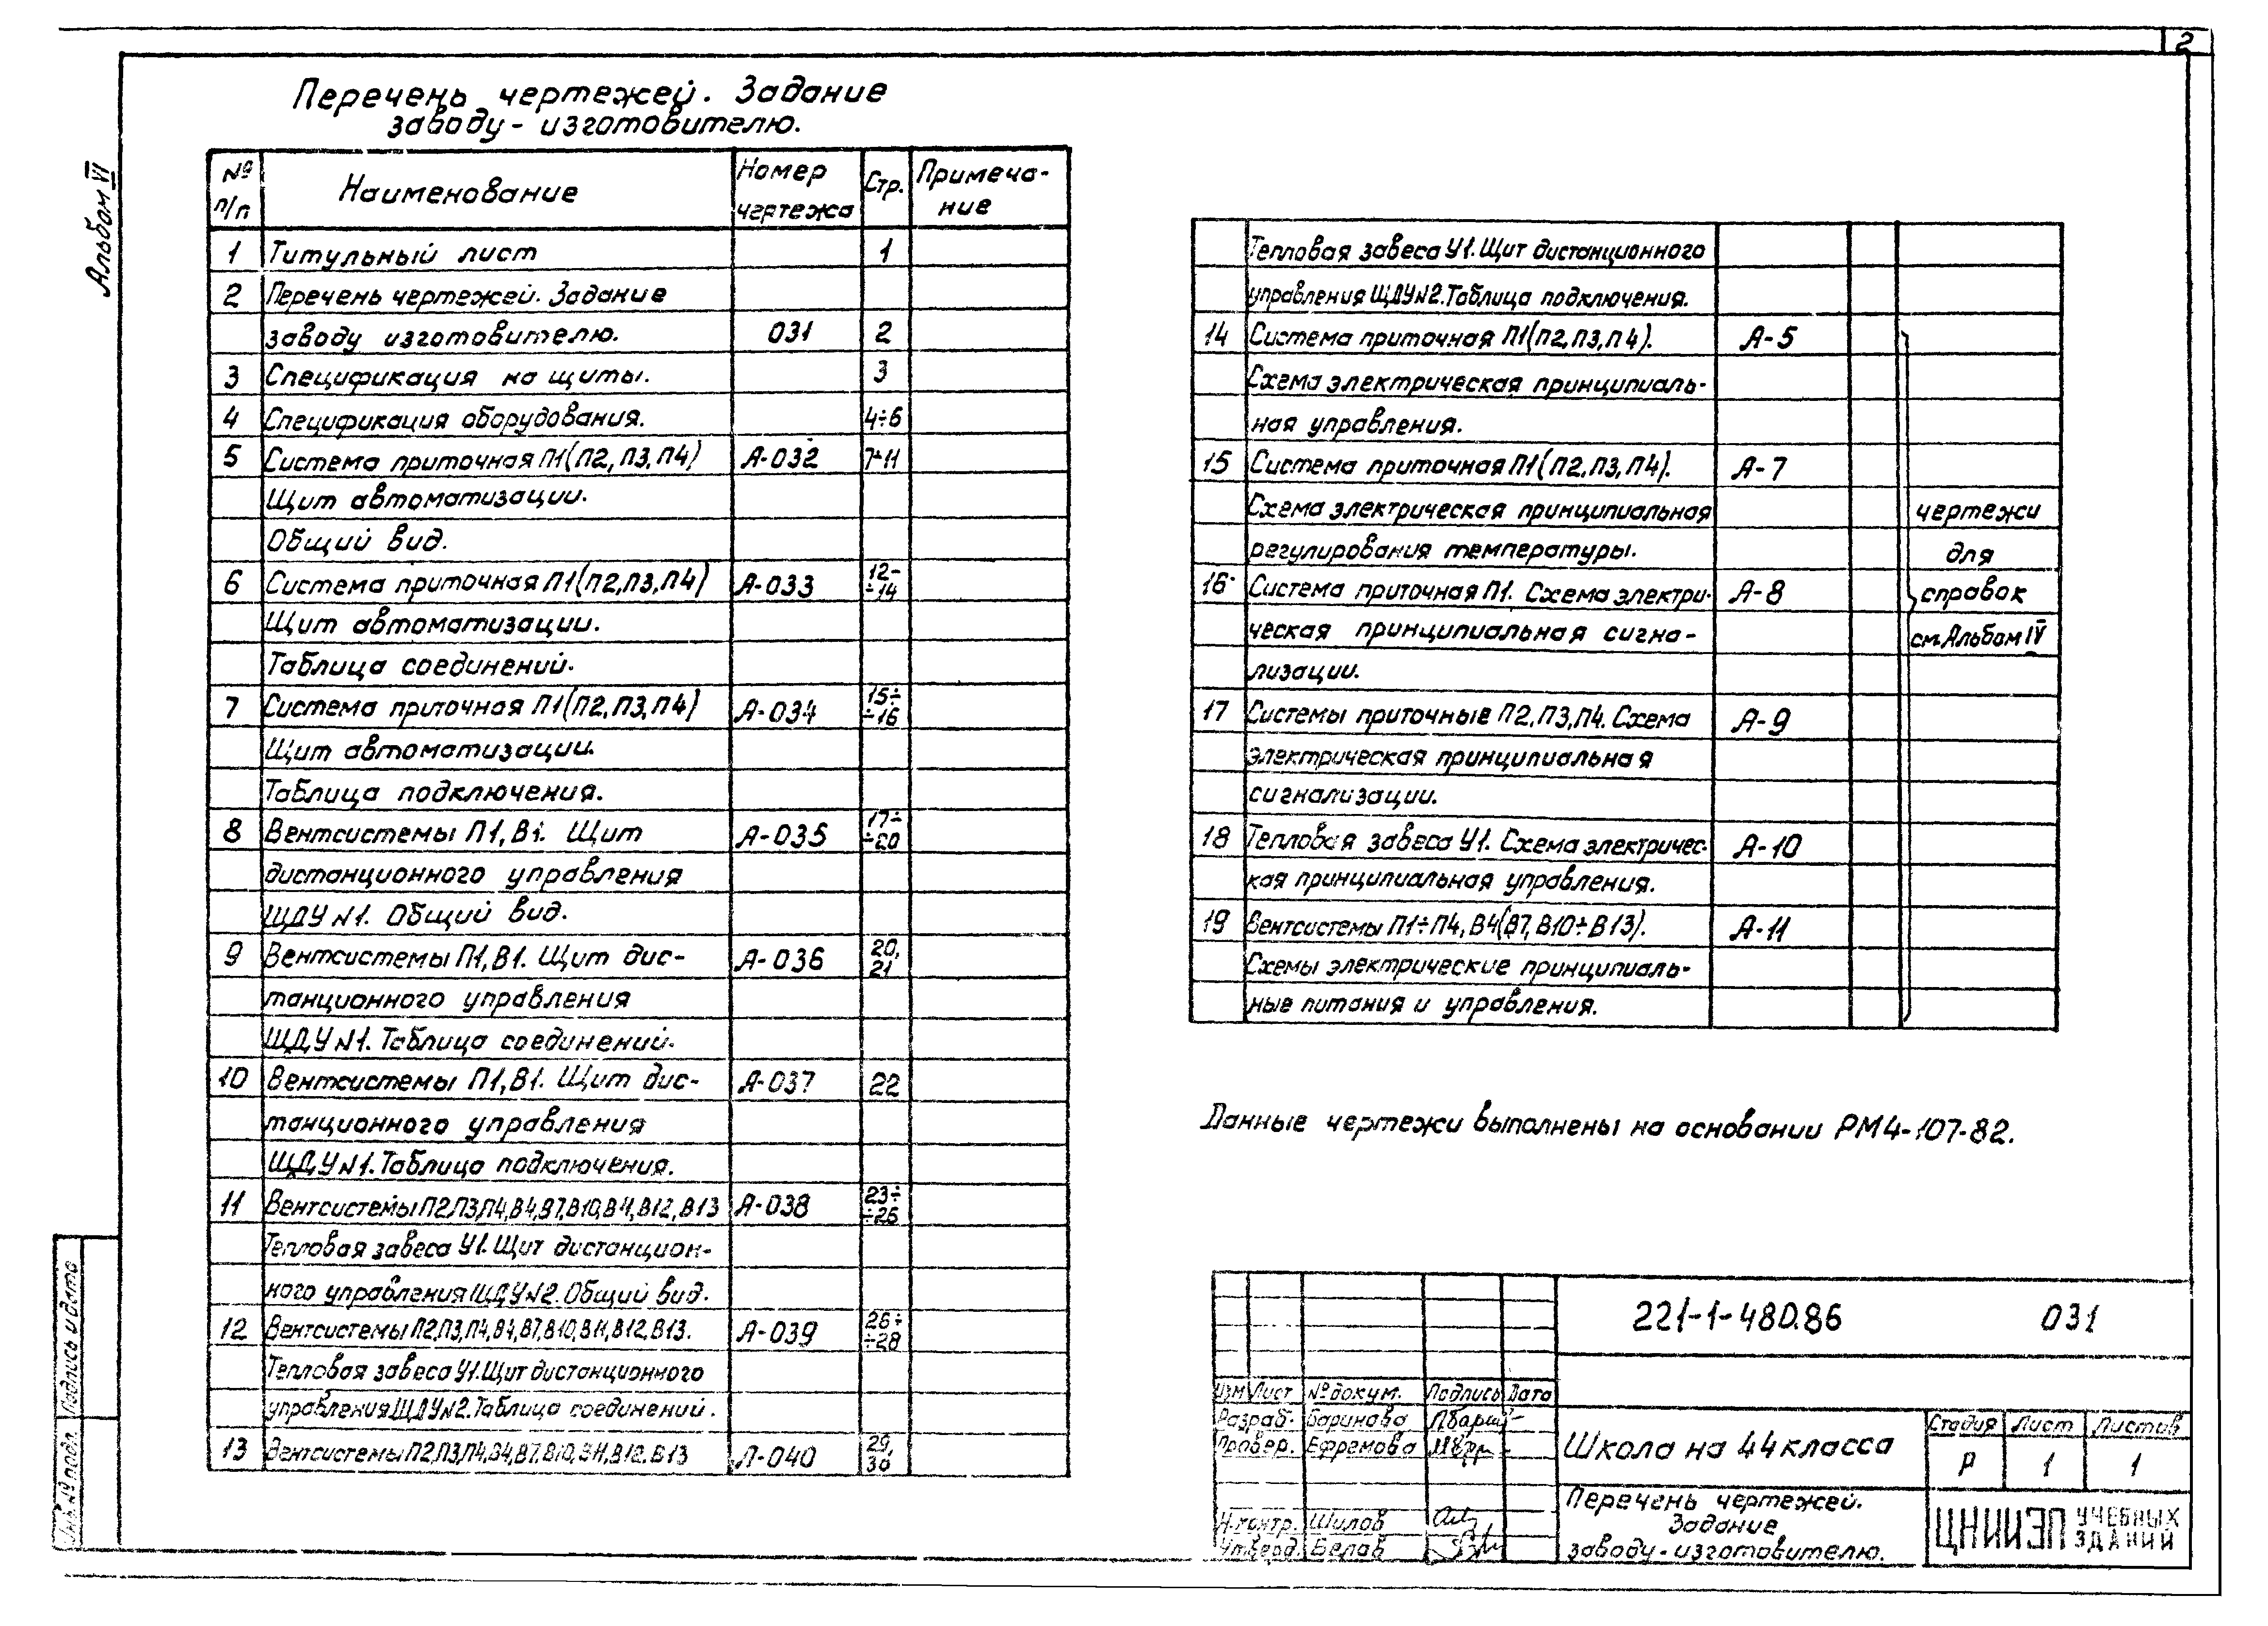 2
Альбом VI
Перечень чертежей. Задание
заводу - изготовителю.
№ п/п Наименование Номер чертежа Стр. Примеча-ние
1 Титульный лист 1
2 Перечень чертежей. Задание
заводу изготовителю. 031 2
3 Спецификация на щиты. 3
4 Спецификация оборудования. 4÷6
5 Система приточная П1(П2, П3, П4) А-032 7÷11
Щит автоматизации.
Общий вид.
6 Система приточная П1(П2,П3,П4) А-033 12-÷14
Щит автоматизации.
Таблица соединений.
7 Система приточная П1(П2,П3,П4) А-034 15÷÷16
Щит автоматизации.
Таблица подключения.
8 Вентсистемы П1, В1. Щит А-035 17÷÷20
дистанционного управления
ЩДУ N1. Общий вид.
9 Вентсистемы П1, В1. Щит дис- А-036 20, 21
танционного управления
ЩДУ N1. Таблица соединений.
10 Вентсистемы П1, В1. Щит дис- А-037 22
танционного управления
ЩДУ N1. Таблица подключения.
11 Вентсистемы П2,П3,П4,В4,В7,В10,В11,В12,В13 А-038 23÷÷26
Тепловая завеса У1. Щит дистанцион-
ного управления ЩДУ N2. Общий вид.
12 Вентсистемы П2,П3,П4,В4,В7,В10,В11,В12,В13. А-039 26÷÷28
Тепловая завеса У1. Щит дистанционного
управления ЩДУ N2. Таблица соединений.
13 Вентсистемы П2,П3,П4,В4,В7,В10,В11,В12,В13 А-040 29, 30
Тепловая завеса У1. Щит дистанционного
управления ЩДУ N2. Таблица подключения.
14 Система приточная П1(П2,П3,П4). А-5
Схема электрическая принципиаль-
ная управления.
15 Система приточная П1(П2,П3,П4). А-7
Схема электрическая принципиальная
регулирования температуры.
16 Система приточная П1. Схема электри- А-8
ческая принципиальная сигна-
лизации.
17 Системы приточные П2,П3,П4. Схема А-9
электрическая принципиальная
сигнализации.
18 Тепловая завеса У1. Схема электричес- А-10
кая принципиальная управления.
19 Вентсистемы П1÷П4, В4(В7, В10÷В13). А-11
Схемы электрические принципиаль-
ные питания и управления.
чертежи
для
справок
см. Альбом IV
Данные чертежи выполнены на основании РМ4-107-82.
221-1-480.86 031
Изм Лист № докум. Подпись Дата
Разраб. Баринова
Провер. Ефремова
Н.контр. Шилов
Утверд. Белов
Школа на 44 класса
Стадия Лист Листов
Р 1 1
Перечень чертежей.
Задание
заводу - изготовителю.
ЦНИИЭП УЧЕБНЫХ ЗДАНИЙ
Инв. № подл. Подпись и дата